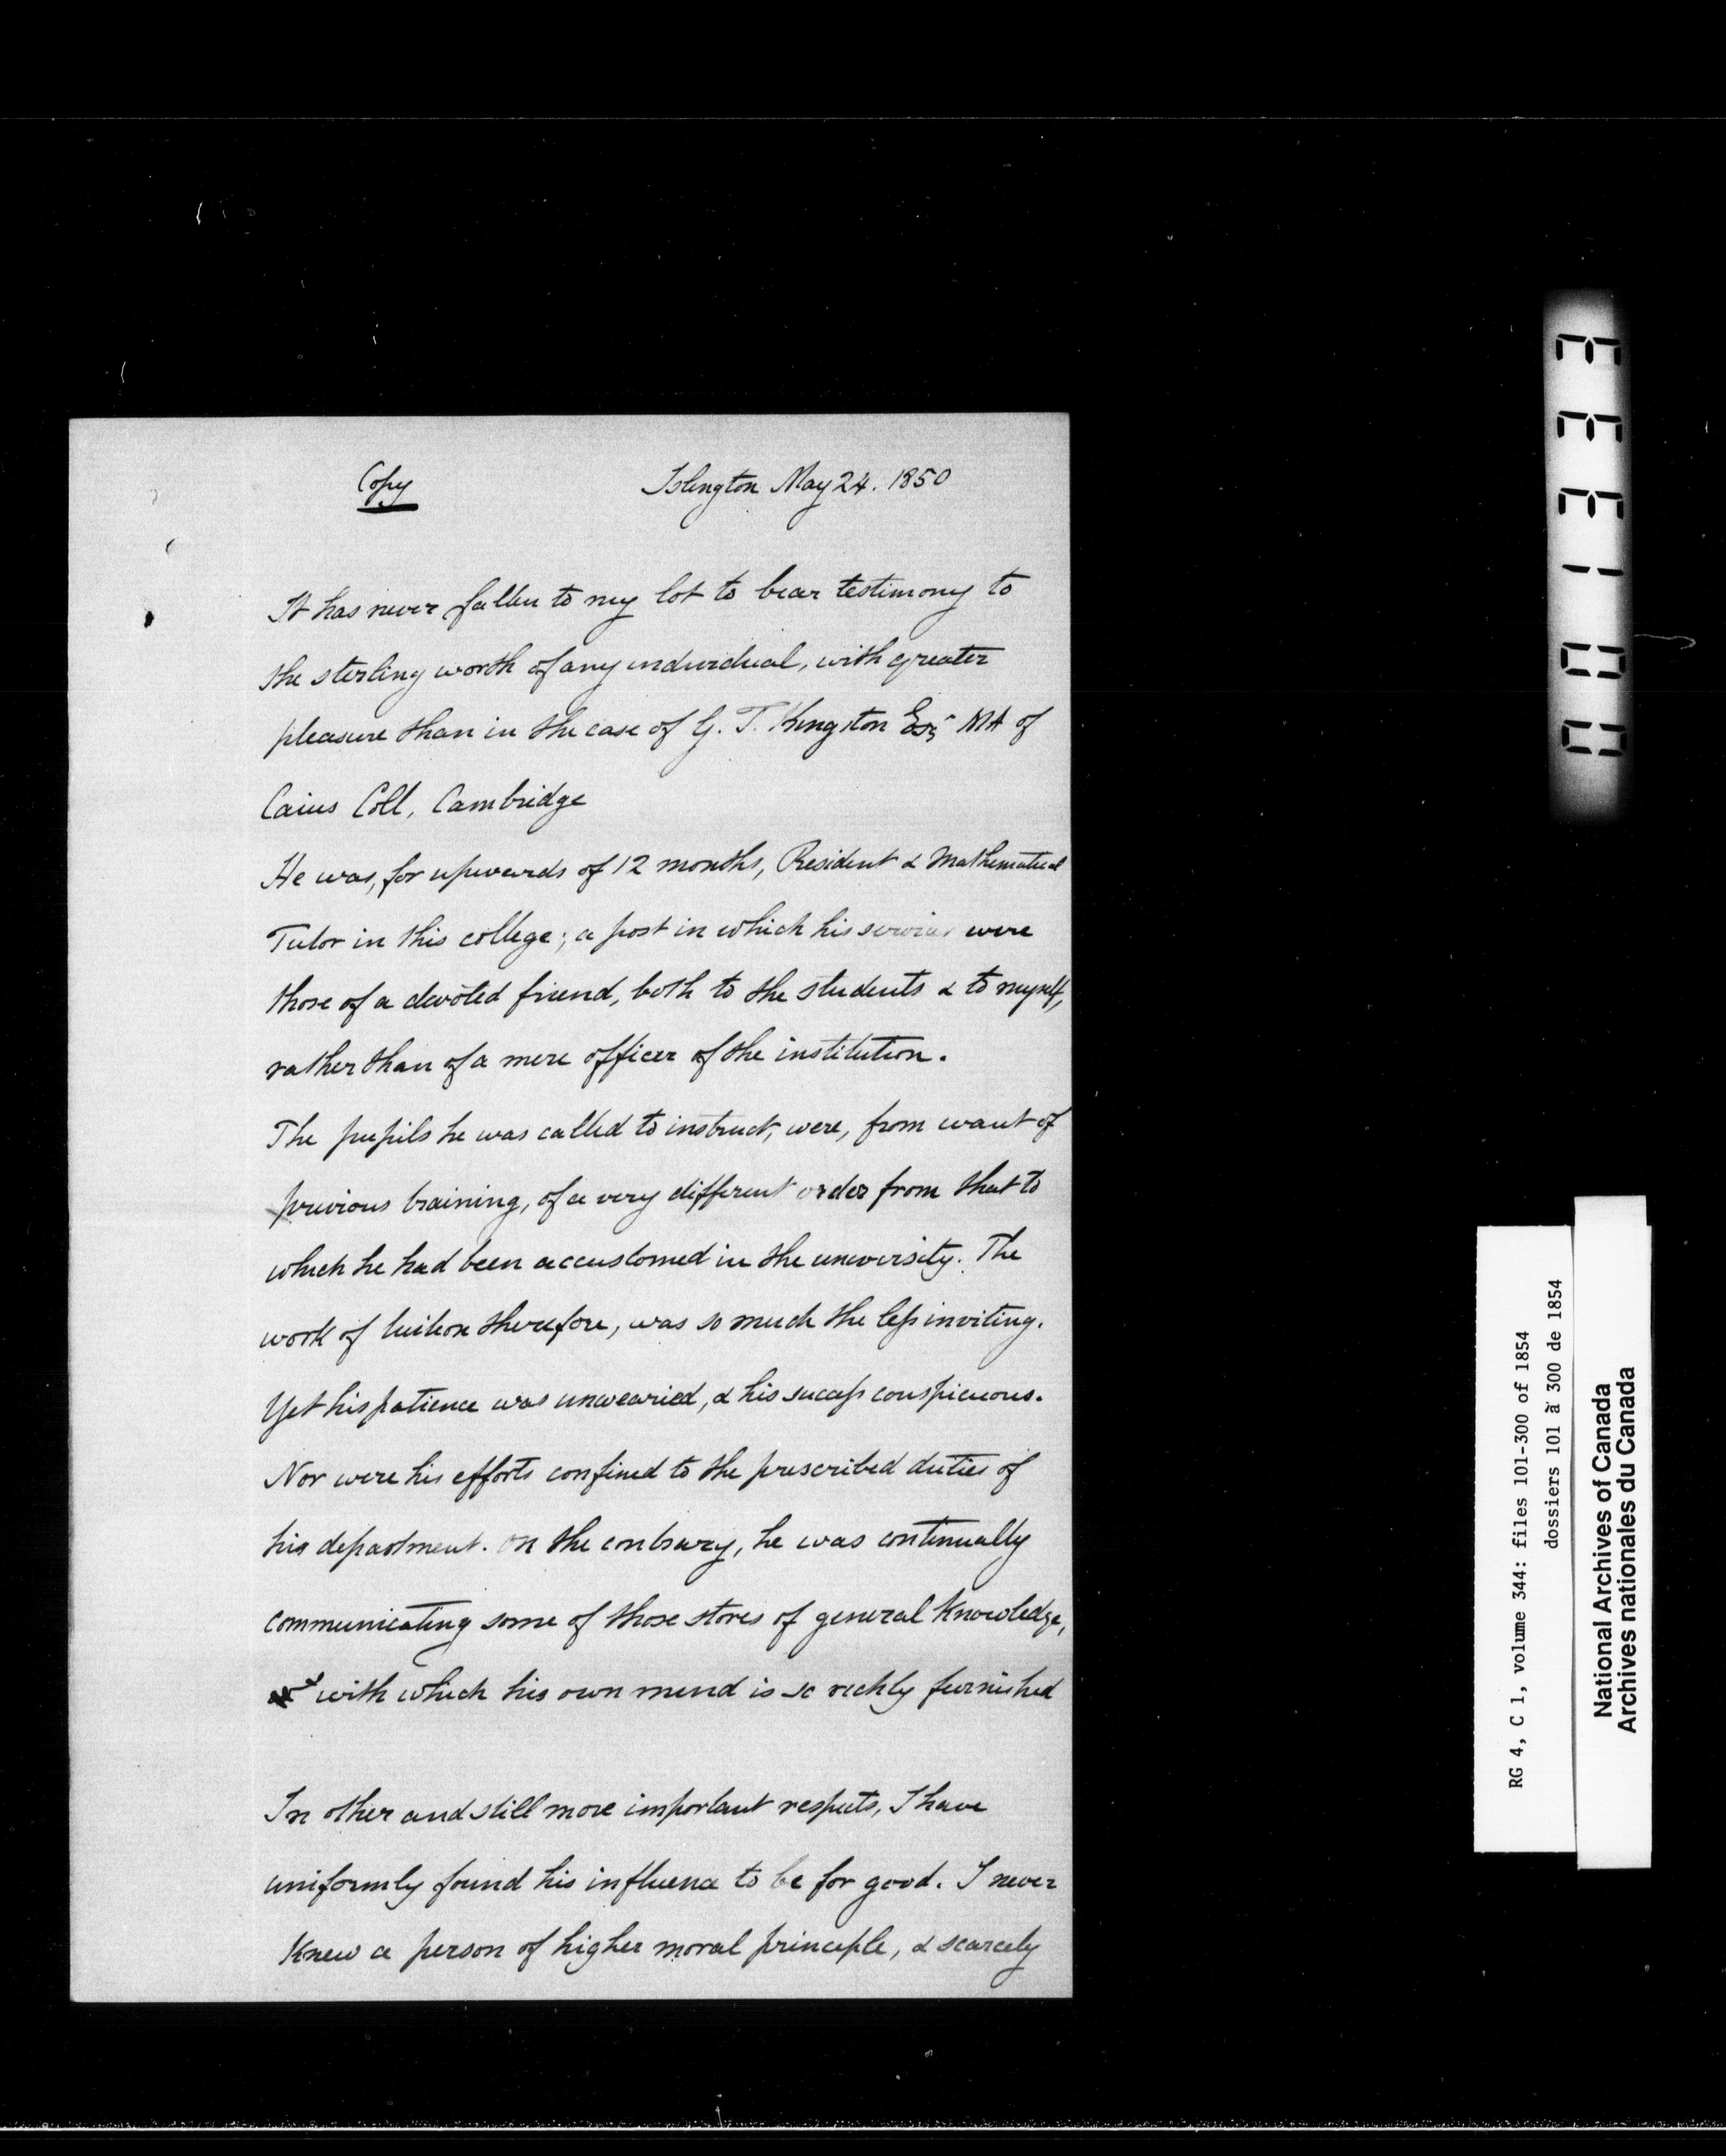 Copy
Islington May 24. 1850
It has never fallen to my lot to bear testimony to
the sterling worth of any individual, with greater
pleasure than in the case of G. T. Kingston Esqr MA of
Caius Coll, Cambridge
He was, for upwards of 12 months, Resident & Mathematical
Tutor in this college; a post in which his services were
those of a devoted friend, both to the students & to myself,
rather than of a mere officer of the institution.
The pupils he was called to instruct, were, from want of
previous training, of a very different order from that to
which he had been accustomed in the university. The
work of tuition therefore, was so much the less inviting.
Yet his patience was unwearied, & his success conspicuous.
Nor were his efforts confined to the prescribed duties of
his department. On the contrary, he was continually
communicating some of those stores of general knowledge,
with which his own mind is so richly furnished
In other and still more important respects, I have
uniformly found his influence to be for good. I never
knew a person of higher moral principle, & scarcely
RG 4, C 1, volume 344: files 101-300 of 1854
dossiers 101 à 300 de 1854
National Archives of Canada
Archives nationales du Canada